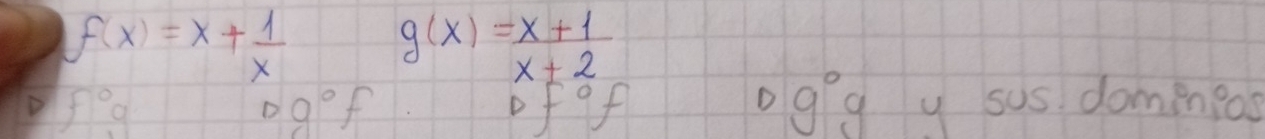 f(x) = x + 1/x g(x) = x + 1 / x + 2
▷ f°g ▷ g°f. ▷ f°f ▷ g°g y sus. dominios